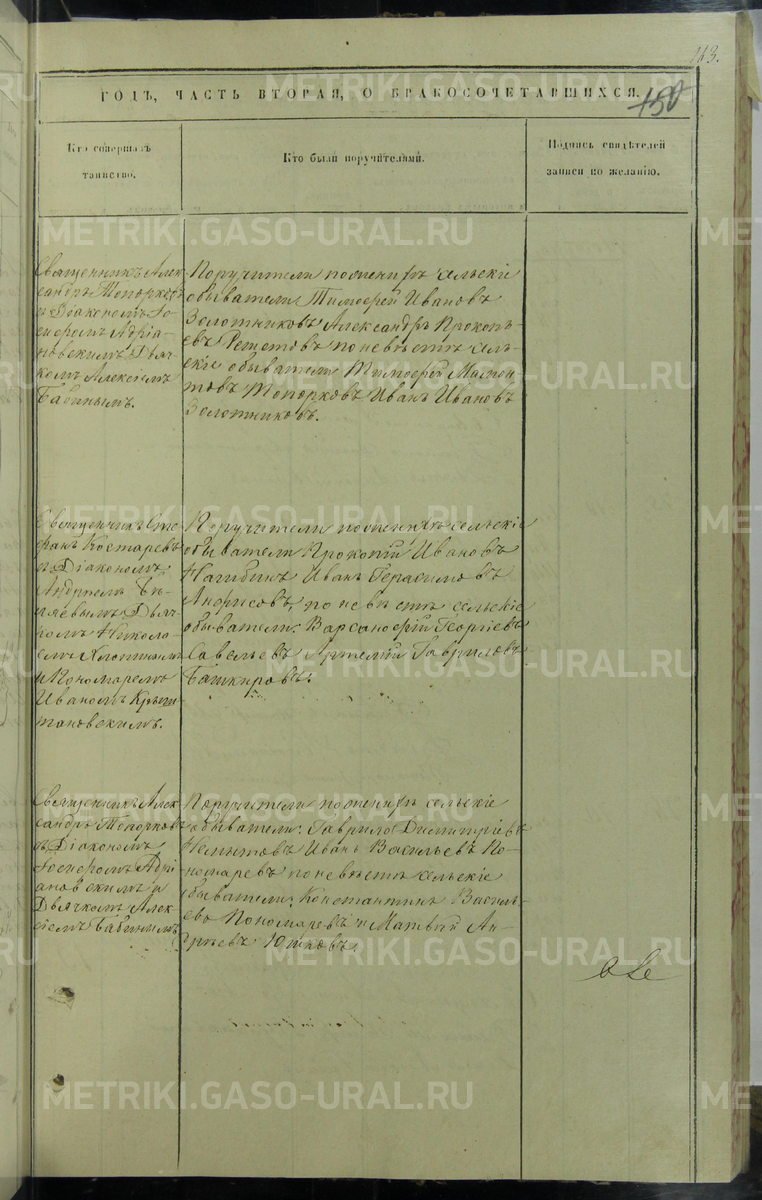 163.
ГОДЪ, ЧАСТЬ ВТОРАЯ, О БРАКОСОЧЕТАВШИХСЯ.
150
Кто совершалъ
таинство.
Кто были поручителями.
Подпись свидѣтелей
записи по желанію.
Священникъ Алек-
сандръ Топорковъ
и Діакономъ Іо-
сифомъ Адріа-
новскимъ Дьяч-
комъ Алексіемъ
Бабинымъ.
Поручители по женихѣ сельскіе
обыватели Тимоѳей Ивановъ
Золотниковъ Александръ Прокопь-
евъ Решетовъ по невѣстѣ сель-
скіе обыватели Тимоѳей Мамон-
товъ Топорковъ Иванъ Ивановъ
Золотниковъ.
Священникъ Сте-
фанъ Костаревъ
съ Діакономъ
Андреемъ Бѣ-
ляевымъ Дьяч-
комъ Никола-
емъ Хлопинымъ
и Пономаремъ
Иваномъ
Поручители по женихѣ сельскіе
обыватели Прокопій Ивановъ
Нагибинъ Иванъ Герасимовъ
по невѣстѣ сельскіе
обыватели: Варсанофій Георгіевъ
Савельевъ Гавриловъ
Башкировъ.
Священникъ Алек-
сандръ Топорковъ
съ Діакономъ
Іосифомъ Адрі-
ановскимъ и
Дьячкомъ Алек-
сіемъ Бабинымъ
Поручители по женихѣ сельскіе
обыватели: Гаврило Димитріевъ
Иванъ Васильевъ По-
номаревъ по невѣстѣ сельскіе
обыватели: Константинъ Василь-
евъ Пономаревъ и Матвѣй Ан-
дреевъ Юшковъ.
METRIKI.GASO-URAL.RU